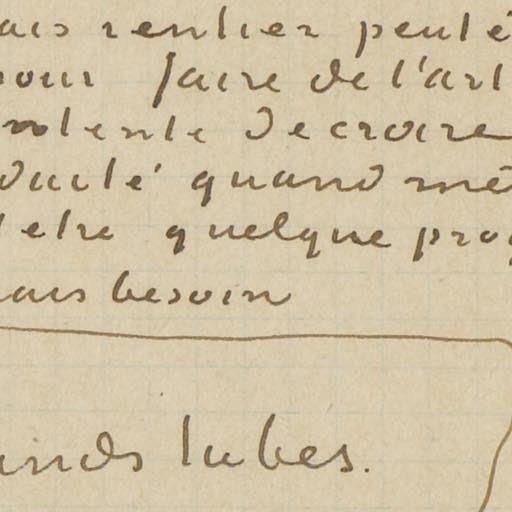 ais rentier peut ê
pour faire de l'art
ntente de croire
duité quand mê
t etre quelque prog
ais besoin
ands tubes.